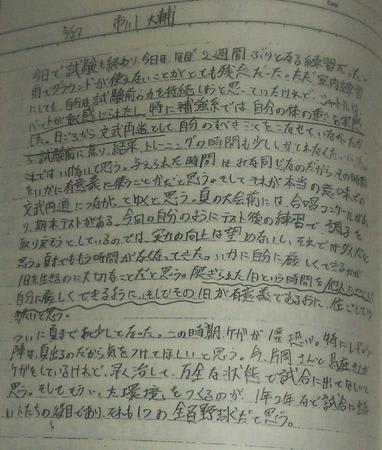 5/27 市川 大輔
今日で試験も終わり、今日は 2週間ぶりとなる練習だった。
雨でグラウンドが使えないことがとても残念だった。ただ室内練習
にしても、自分は試験前の力を持続しようと思っていたけれど、シャトルは
バットが 感じられたし、特に補強系では、自分の体の重さを実感
した。日ごろから文武両道として自分のすべきことをこなせていなかったから
試験前に焦り、結果、トレーニングの時間も少ししかとれなくなった。
それではいけないと思う。与えられた時間はみな同じなのだからその時間
をいかに有意義に使うことかだと思う。そしてそれが本当の意味での
文武両道につながってゆくと思う。夏の大会前には、合唱コンクールがあ
り、期末テストがある。今回の自分のようにテスト後の練習で 調子を
取り戻そうとしているのでは、実力の向上は望めないし、それではダメだと
思う。夏までもう時間がなくなってきた。いかに自分に厳しくできるかが
1日を生きるのに大切なことだと思う。限られた1日という時間を
自分に厳しくできるように、そしてその1日が有意義であるように、
たいと思う。
ついに夏まで 少しとなった。この時期、ケガが1番恐い。特にレギュラー
陣は、夏出るのだから気をつけてほしいと思う。今、片岡さんと
ケガをしているけれど、早く治して、万全な状態で試合に出てほしいと
思う。そしてもういった環境をつくるのが、1年2年など試合に出
い人たちの役目であり、それも1つの全員野球だと思う。